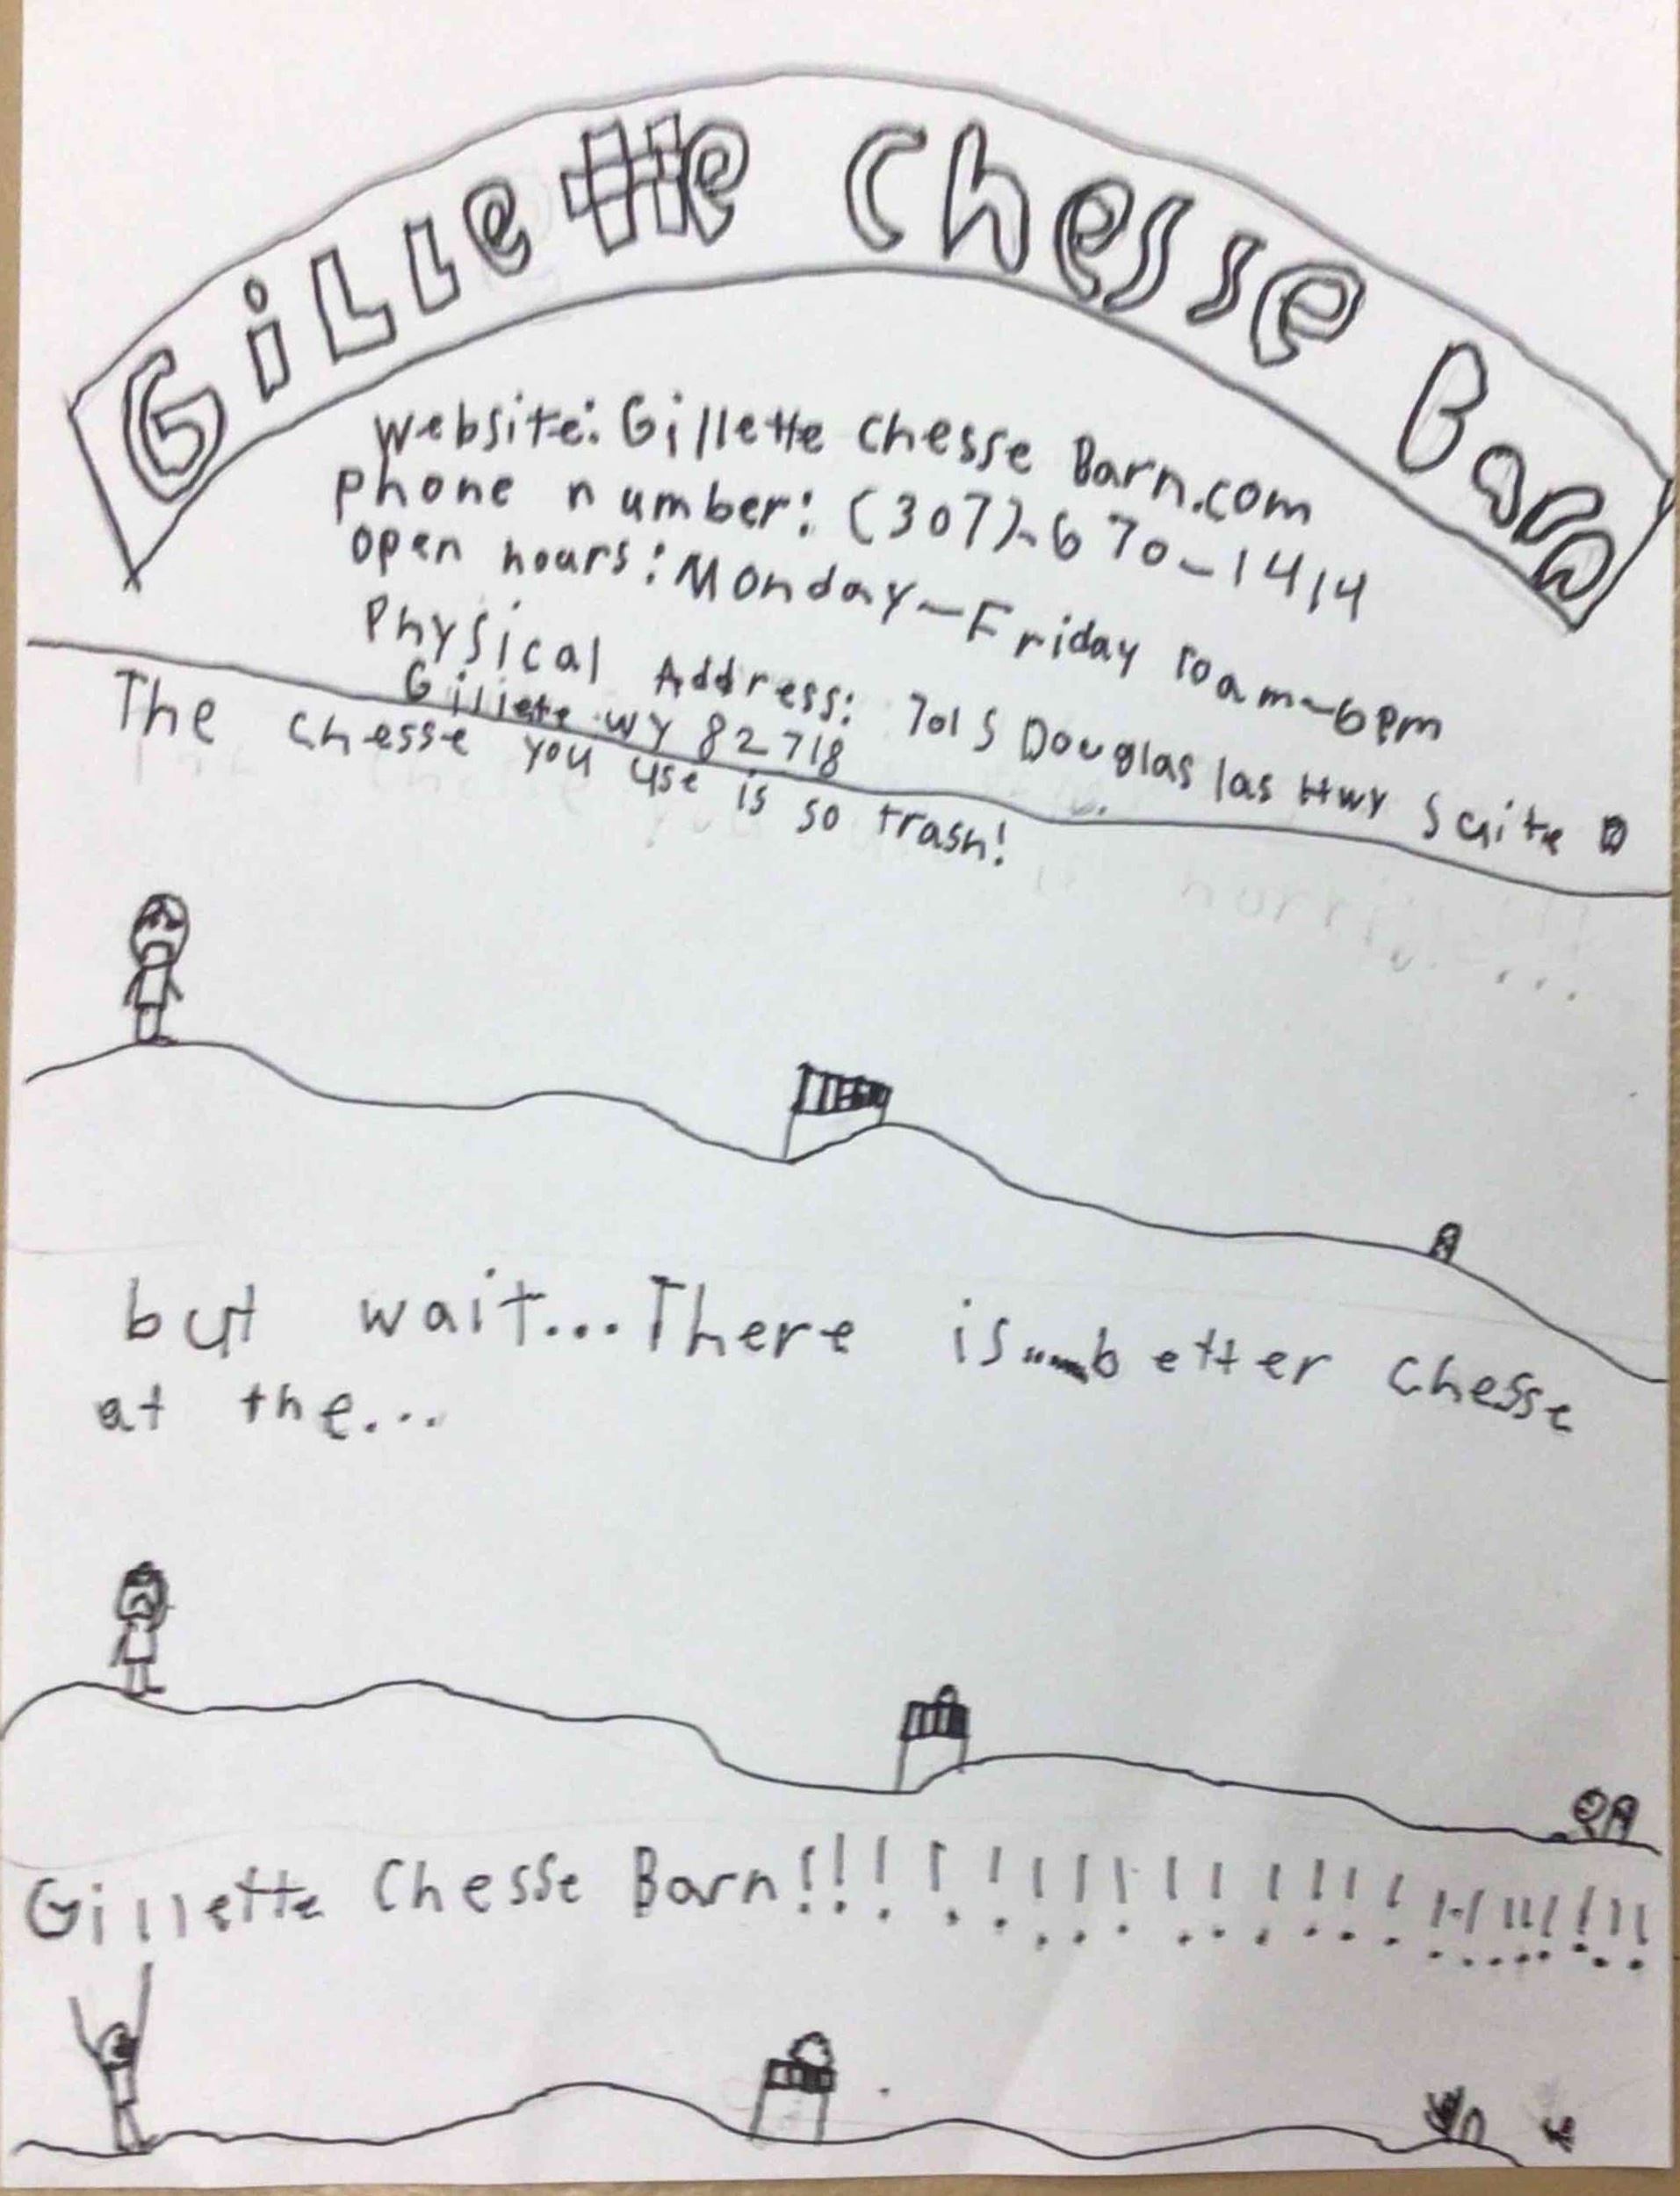 GiLLette Chesse Barn
website: Gillette Chesse Barn.com
Phone number: (307)-670-1414
open hours: Monday-Friday 10am-6pm
Physical Address: 701 S Douglas las Hwy Suite D
Gillette WY 82718
The chesse you use is so trash!
but wait...There is....better chesse
at the...
Gillette Chesse Barn!!!!!!!!!!!!!!!!!!!!!!!!!!